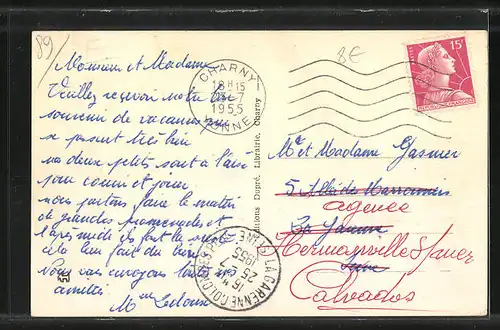 89
8E
Monsieur et Madame
Veuillez recevoir notre bon
souvenir de vacances qui
se passent très bien
nos deux petits sont à l'aise
pour courir et jouer
nous partons faire le matin
de grandes promenades et
l'après midi ils font la sieste
cela leur fait du bien
Nous vous envoyons toutes nos
amitiés
Mme Ledoux
CHARNY
18H15
-7
1955
YONNE
Editions Dupré, Librairie, Charny
15F
Mr et Madame Gasnier
5 Allée de
agence
La Garenne
Hermanville s/mer
Seine
Calvados
LA GARENNE-COLOMBES
16H
25-7
1955
SEINE